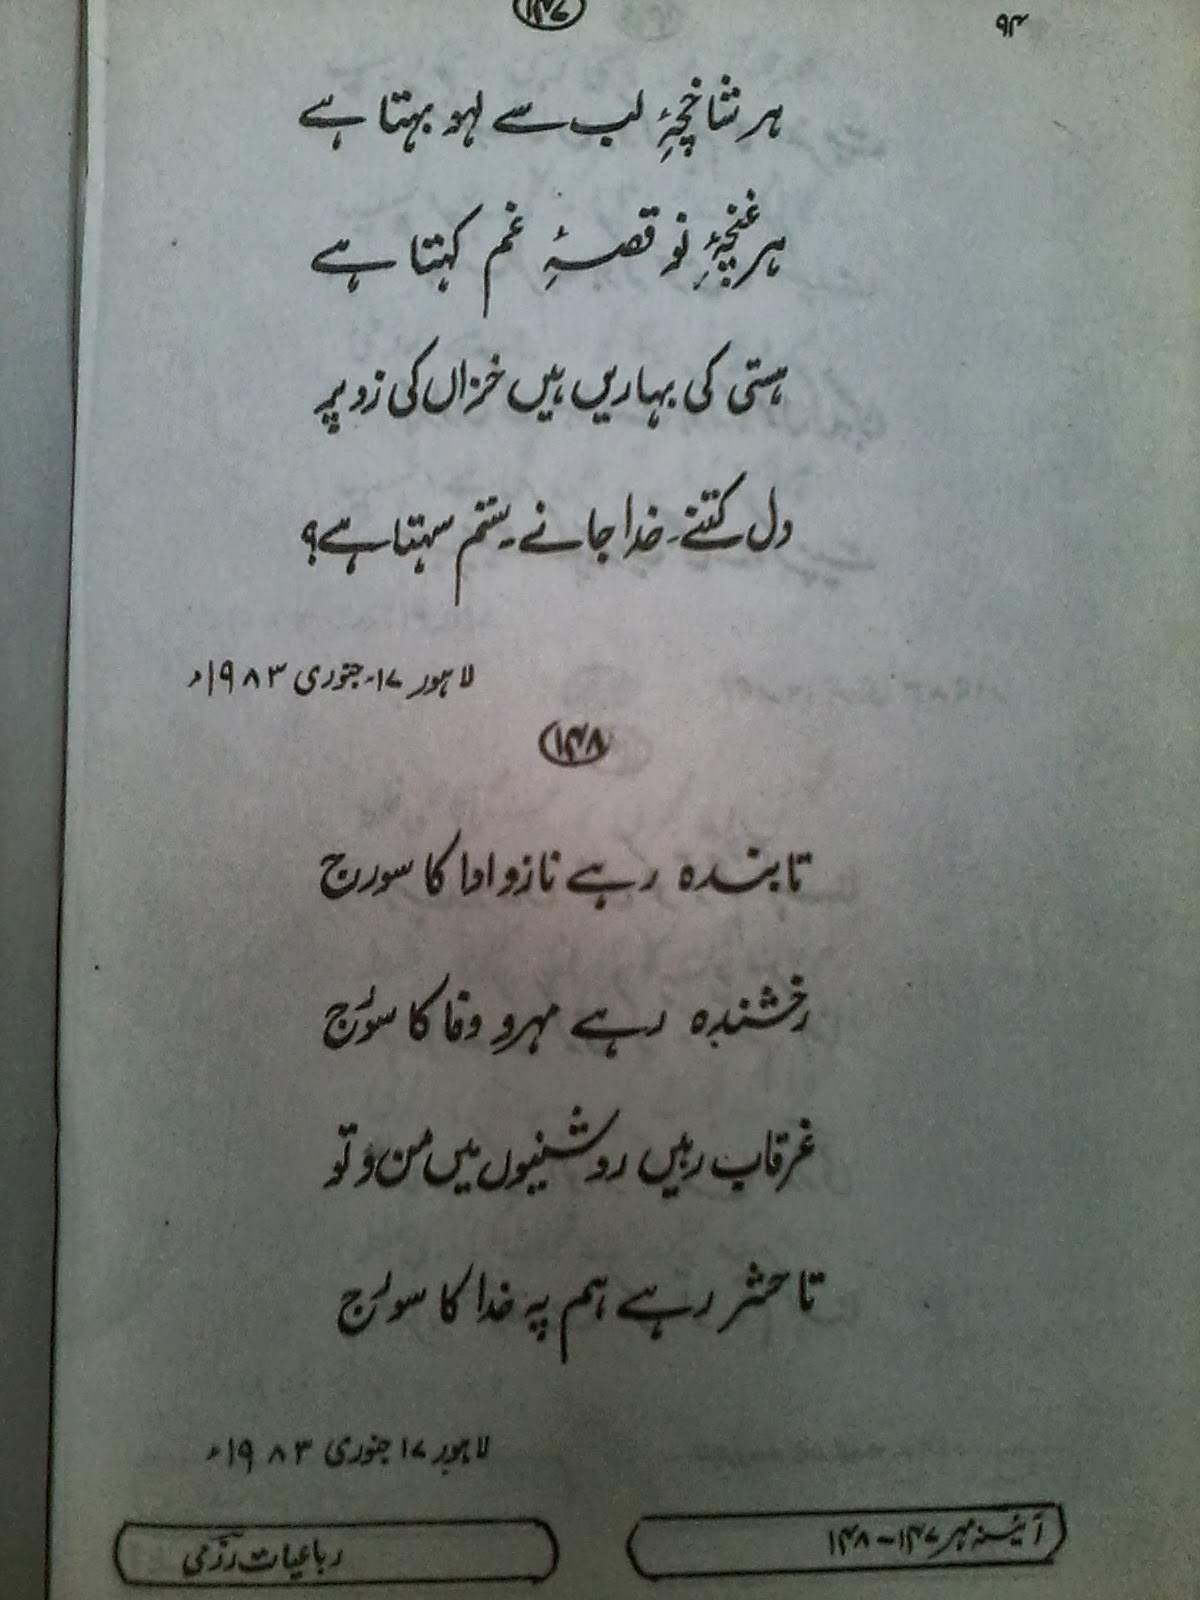 ۹۴
۱۴۷
ہر شاخچۂِ لب سے لہو بہتا ہے
ہر غنچۂِ نو قصۂِ غم کہتا ہے
ہستی کی بہاریں ہیں خزاں کی زد پر
دل کتنے۔ خدا جانے۔ ستم سہتا ہے؟
لاہور ۱۷۔جنوری ۱۹۸۳ء
۱۴۸
تابندہ رہے ناز و ادا کا سورج
رخشندہ رہے مہر و وفا کا سوُرج
غرقاب رہیں روشنیوں میں من و توُ
تا حشر رہے ہم پہ خدا کا سوُرج
لاہور ۱۷ جنوری ۱۹۸۳ء
آئینۂ مہر ۱۴۷–۱۴۸
رباعیات رزمی